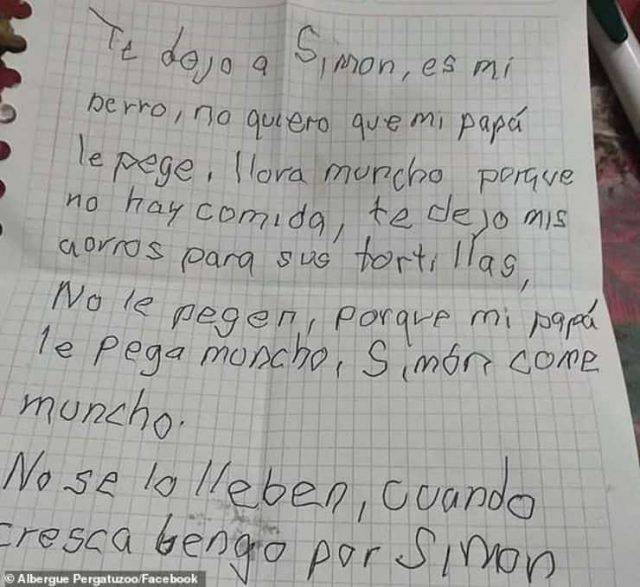 Te dejo a Simon, es mi
perro, no quiero que mi papá
le pege, llora muncho porque
no hay comida, te dejo mis
aorros para sus tortillas,
No le pegen, porque mi papá
le pega muncho, Simón come
muncho.
No se lo lleben, cuando
cresca bengo por Simon
© Albergue Pergatuzoo/Facebook